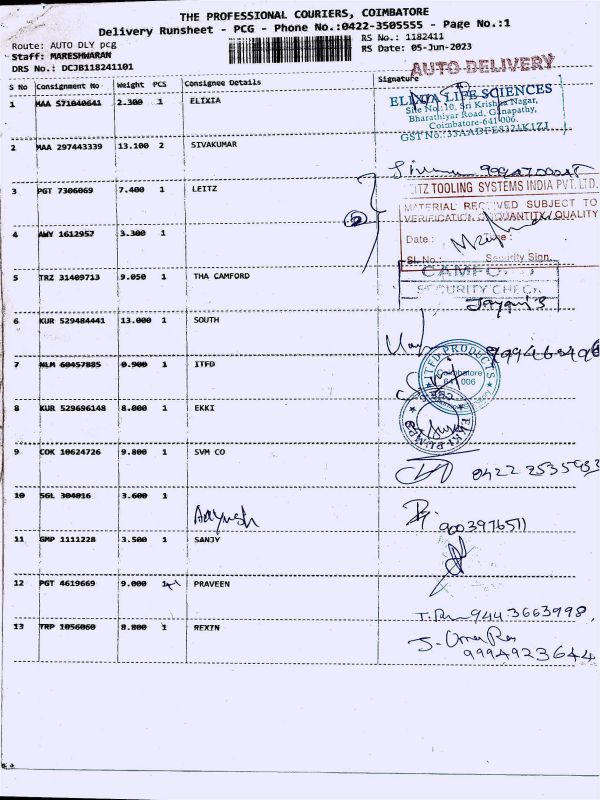 THE PROFESSIONAL COURIERS, COIMBATORE
Delivery Runsheet - PCG - Phone No.:0422-3505555 - Page No.:1
Route: AUTO DLY pcg
RS No.: 1182411
Staff: MARESHWARAN
RS Date: 05-Jun-2023
DRS No.: DCJB118241101
AUTO DELIVERY
S No Consignment No Weight PCS Consignee Details Signature
1 MAA 571040641 2.300 1 ELIXIA
ELIXIA LIFE SCIENCES
Site No.:10, Sri Krishna Nagar,
Bharathiyar Road, Ganapathy,
Coimbatore-641006.
2 MAA 297443339 13.100 2 SIVAKUMAR
3 PGT 7306069 7.400 1 LEITZ
ITZ TOOLING SYSTEMS INDIA PVT. LTD.
MATERIAL RECEIVED SUBJECT TO
VERIFICATION QUANTITY/QUALITY
2
4 AWY 1612957 3.300 1
Date : Time :
Sl. No.: Security Sign.
5 TRZ 31409713 9.050 1 THA CAMFORD
SECURITY CHECK
6 KUR 529484441 13.000 1 SOUTH
7 NLM 60457885 0.900 1 ITFD
ITFD PRODUCTS
Coimbatore
641 006
8 KUR 529696148 8.000 1 EKKI
EKKI PUMPS
9 COK 10624726 9.800 1 SVM CO
0422 2535953
10 SGL 304016 3.600 1
Aayush
9003976511
11 GMP 1111228 3.500 1 SANJY
12 PGT 4619669 9.000 1 PRAVEEN
9443663998,
13 TRP 1056060 8.800 1 REXIN
9994923644